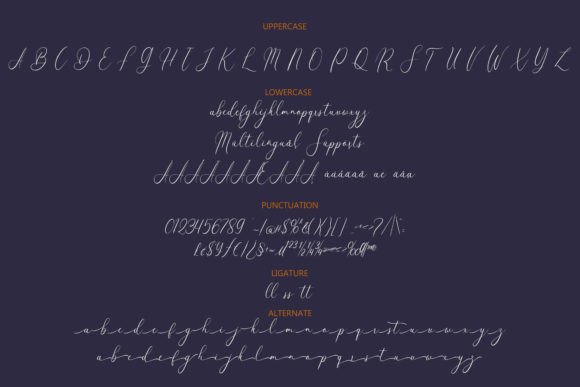 UPPERCASE
A B C D E F G H I J K L M N O P Q R S T U V W X Y Z
LOWERCASE
abcdefghijklmnopqrstuvwxyz
Multilingual Supports
PUNCTUATION
0123456789
LIGATURE
ll ss tt
ALTERNATE
abcdefghijklmnopqrstuvwxyz
abcdefghijklmnopqrstuvwxyz